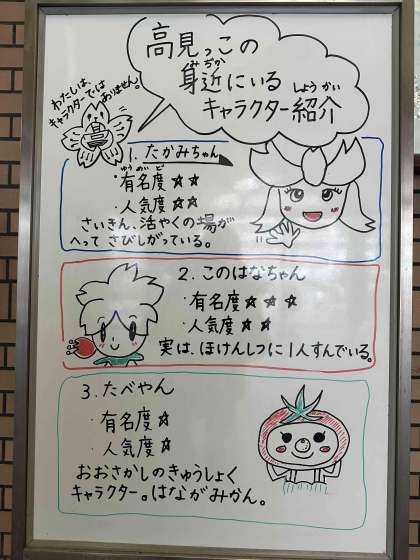 高見っこの
身近にいる
みぢか
キャラクター紹介
しょうかい
わたしは、
キャラクターでは
ありません。
高
1. たかみちゃん
ゆうめいど
・有名度☆☆
・人気度☆☆
さいきん、活やくの場が
へって さびしがっている。
2. このはなちゃん
・有名度☆☆☆
・人気度☆☆
実は、ほけんしつに1人すんでいる。
3. たべやん
・有名度☆
・人気度☆
おおさかしのきゅうしょく
キャラクター。はながみかん。